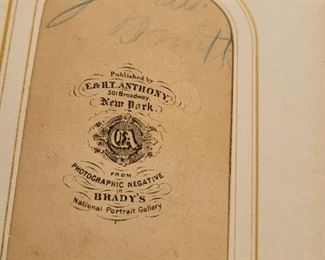 Published by
E. & H.T. ANTHONY,
501 Broadway
New York.
EA
FROM
PHOTOGRAPHIC NEGATIVE
in
BRADY'S
National Portrait Gallery